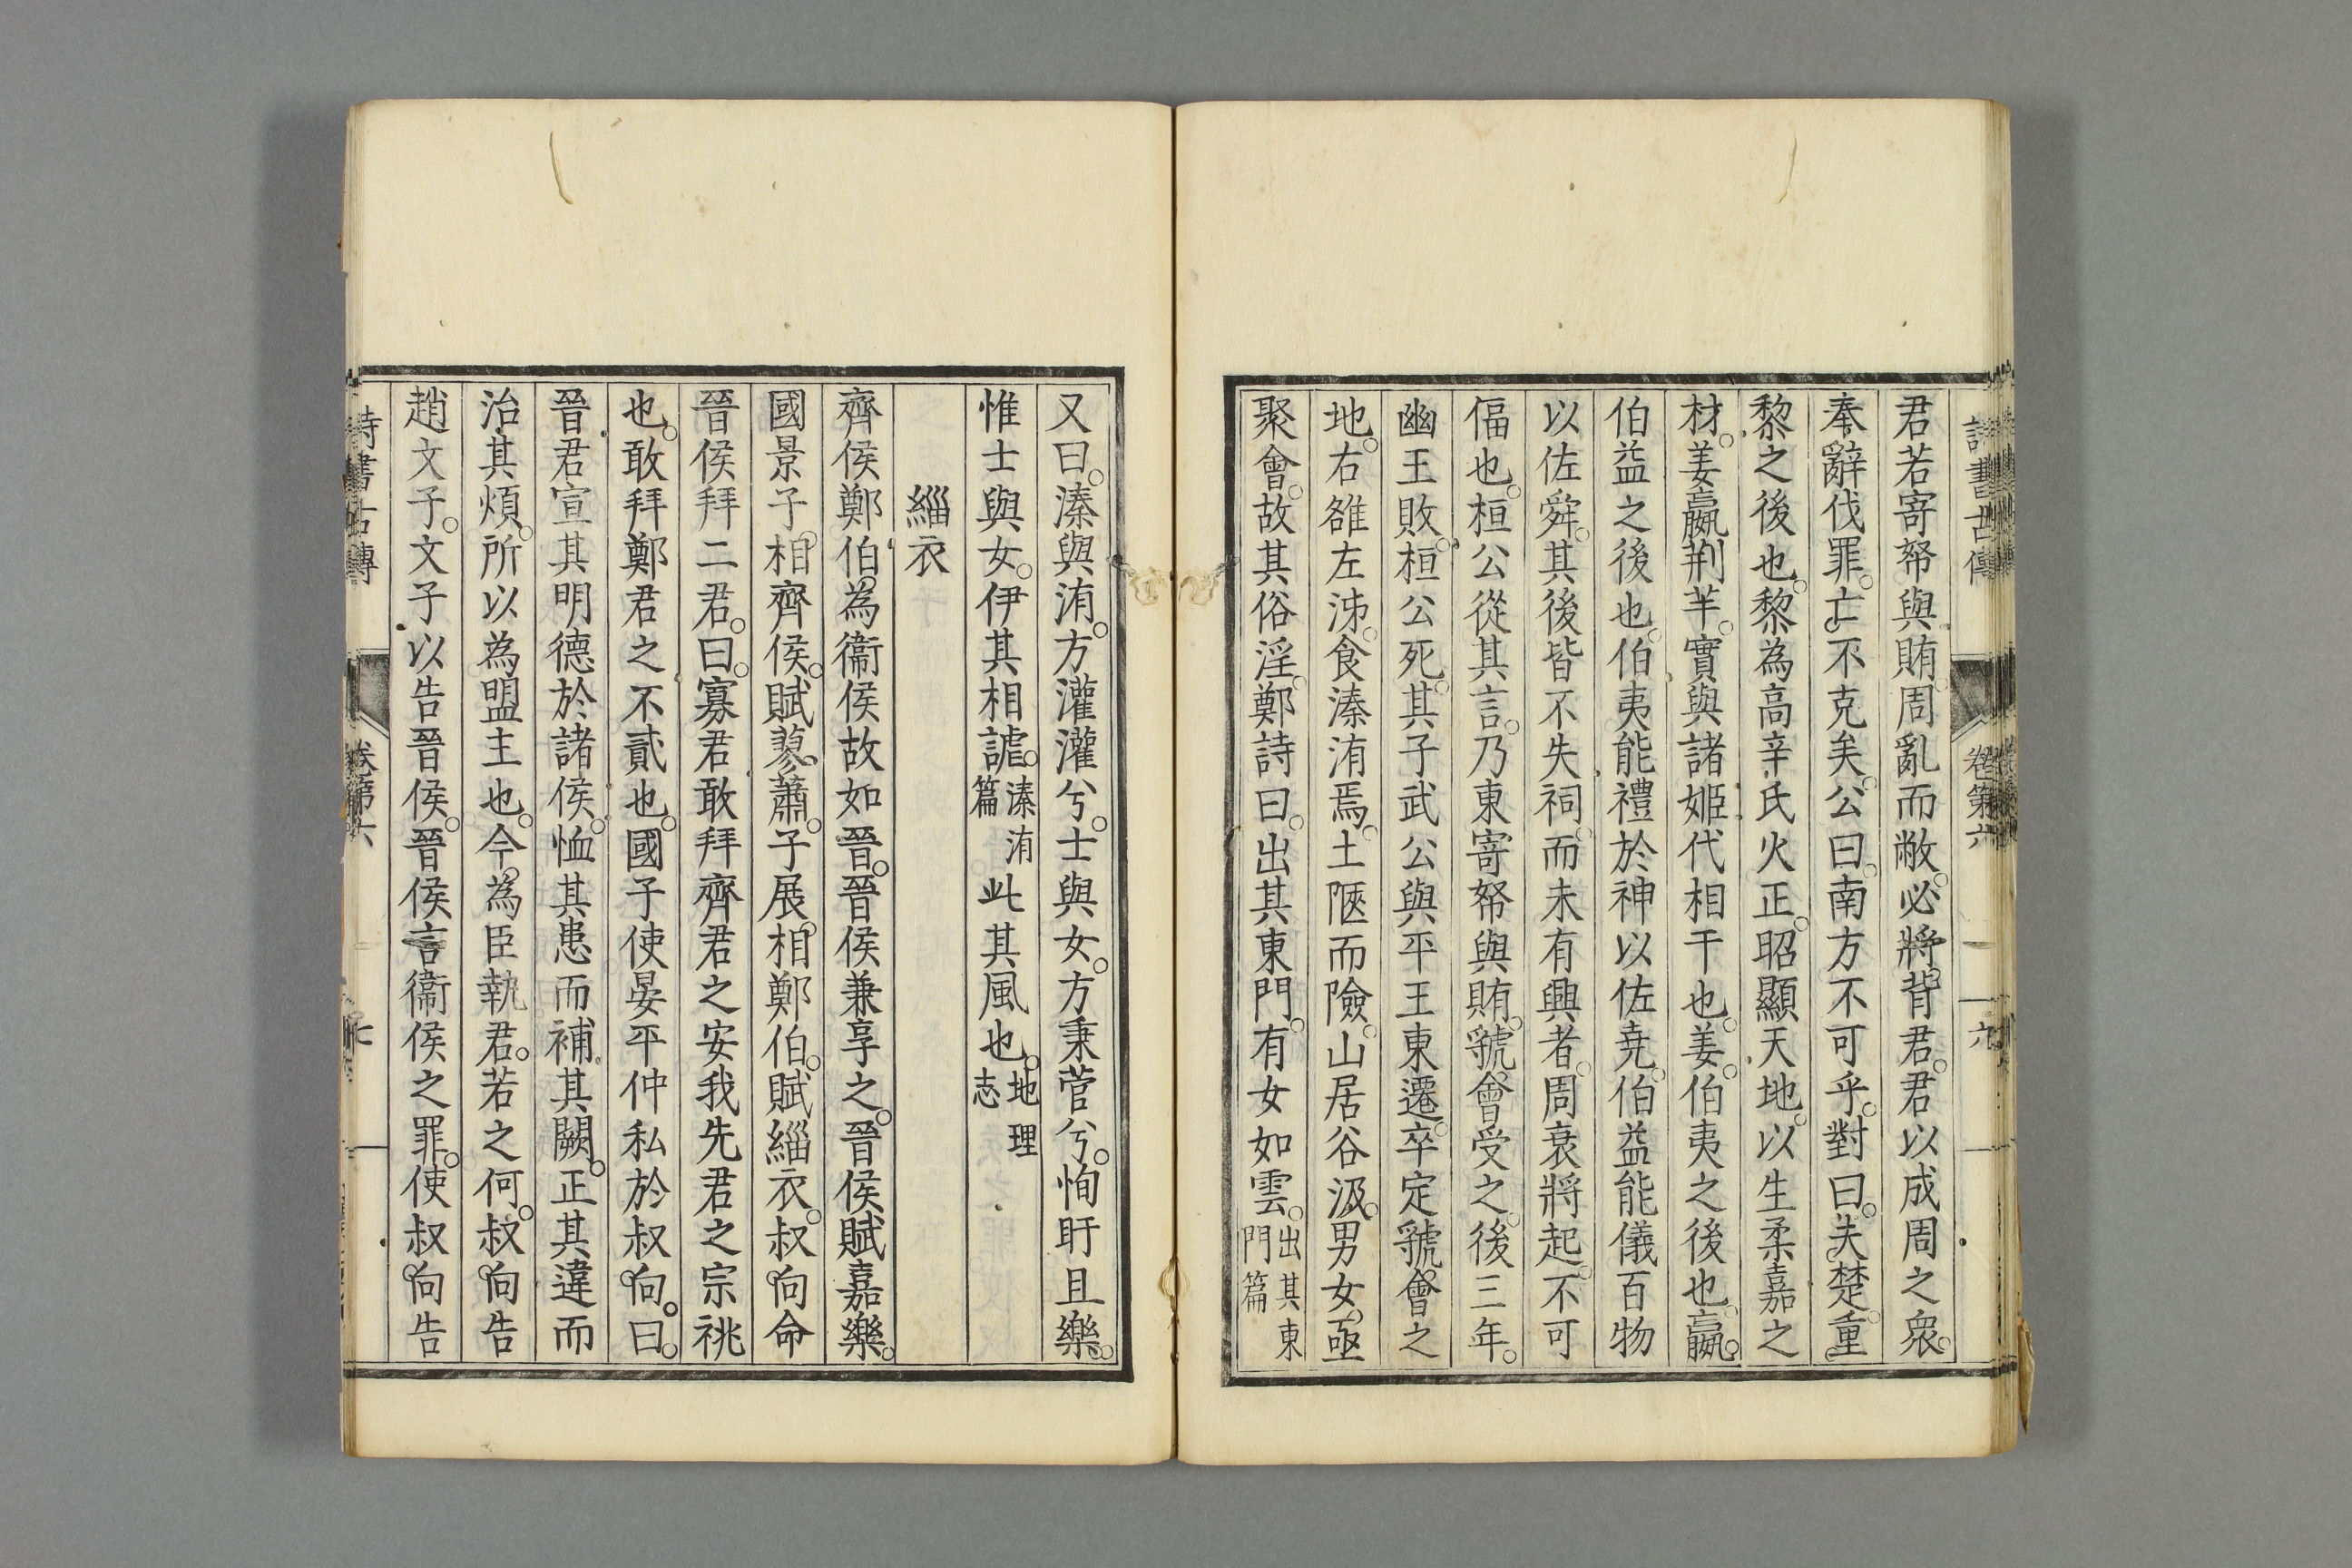 詩書古傳 卷第六 六
君若寄帑與賄周亂而敝必將背君君以成周之衆
奉辭伐罪亡不克矣公曰南方不可乎對曰夫楚重
黎之後也黎為高辛氏火正昭顯天地以生柔嘉之
材姜嬴荆芈實與諸姬代相干也姜伯夷之後也嬴
伯益之後也伯夷能禮於神以佐堯伯益能儀百物
以佐舜其後皆不失祠而未有興者周衰將起不可
偪也桓公從其言乃東寄帑與賄虢會受之後三年
幽王敗桓公死其子武公與平王東遷卒定虢會之
地右雒左泲食溱洧焉土陿而險山居谷汲男女亟
聚會故其俗淫鄭詩曰出其東門有女如雲出其東門篇
又曰溱與洧方灌灌兮士與女方秉菅兮恂盱且樂
惟士與女伊其相謔溱洧篇此其風也地理志
緇衣
齊侯鄭伯為衞侯故如晉晉侯兼享之晉侯賦嘉樂
國景子相齊侯賦蓼蕭子展相鄭伯賦緇衣叔向命
晉侯拜二君曰寡君敢拜齊君之安我先君之宗祧
也敢拜鄭君之不貳也國子使晏平仲私於叔向曰
晉君宣其明德於諸侯恤其患而補其闕正其違而
治其煩所以為盟主也今為臣執君若之何叔向告
趙文子文子以告晉侯晉侯言衞侯之罪使叔向告
詩書古傳 卷第六 七